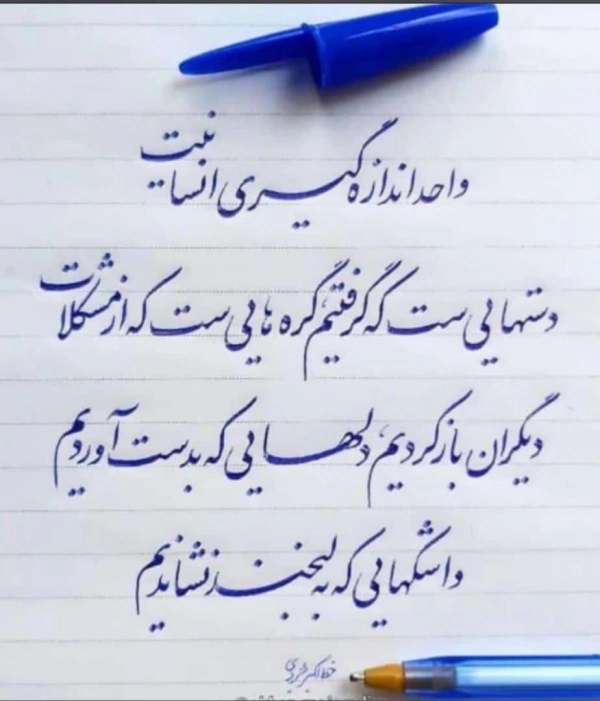 واحد اندازه گیری انسانیت
دستهایی ست که گرفتیم، گره هایی ست که از مشکلات
دیگران باز کردیم، دلهایی که بدست آوردیم
و اشکهایی که به لبخند نشاندیم
خط اکبر